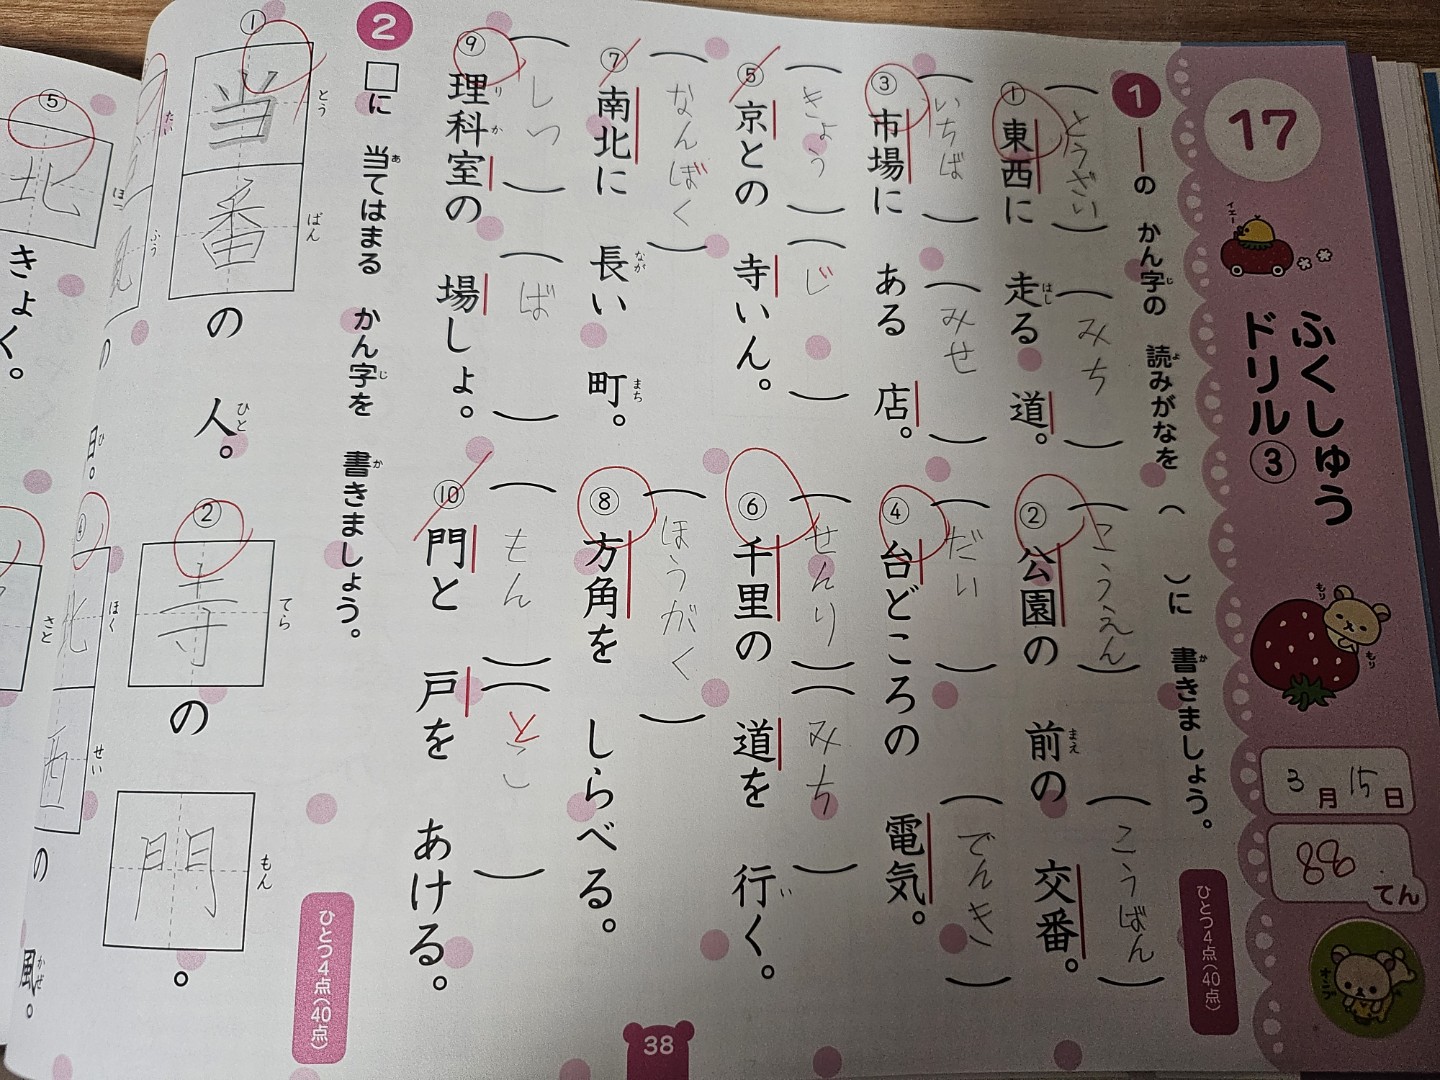 17
イェー
ふくしゅう
ドリル③
もり
もり
3月15日
88てん
1 ーの かん字の 読みがなを （ ）に 書きましょう。
じ
よ
か
ひとつ4点（40点）
① 東西に 走る 道。
はし
とうざい
みち
② 公園の 前の 交番。
まえ
こうえん
こうばん
③ 市場に ある 店。
いちば
みせ
④ 台どころの 電気。
だい
でんき
⑤ 京との 寺いん。
きょう
じ
⑥ 千里の 道を 行く。
い
せんり
みち
⑦ 南北に 長い 町。
なが
まち
なんぼく
⑧ 方角を しらべる。
ほうがく
⑨ 理科室の 場しょ。
り
か
しつ
ば
⑩ 門と 戸を あける。
もん
と
こ
2 □に 当てはまる かん字を 書きましょう。
あ
じ
か
ひとつ4点（40点）
① 当番の 人。
とう
ばん
ひと
② 寺の 門。
てら
もん
たい
ふう
の
日。
ひ
④ 北西の 風。
ほく
せい
かぜ
⑤ 北きょく。
ほっ
さと
38